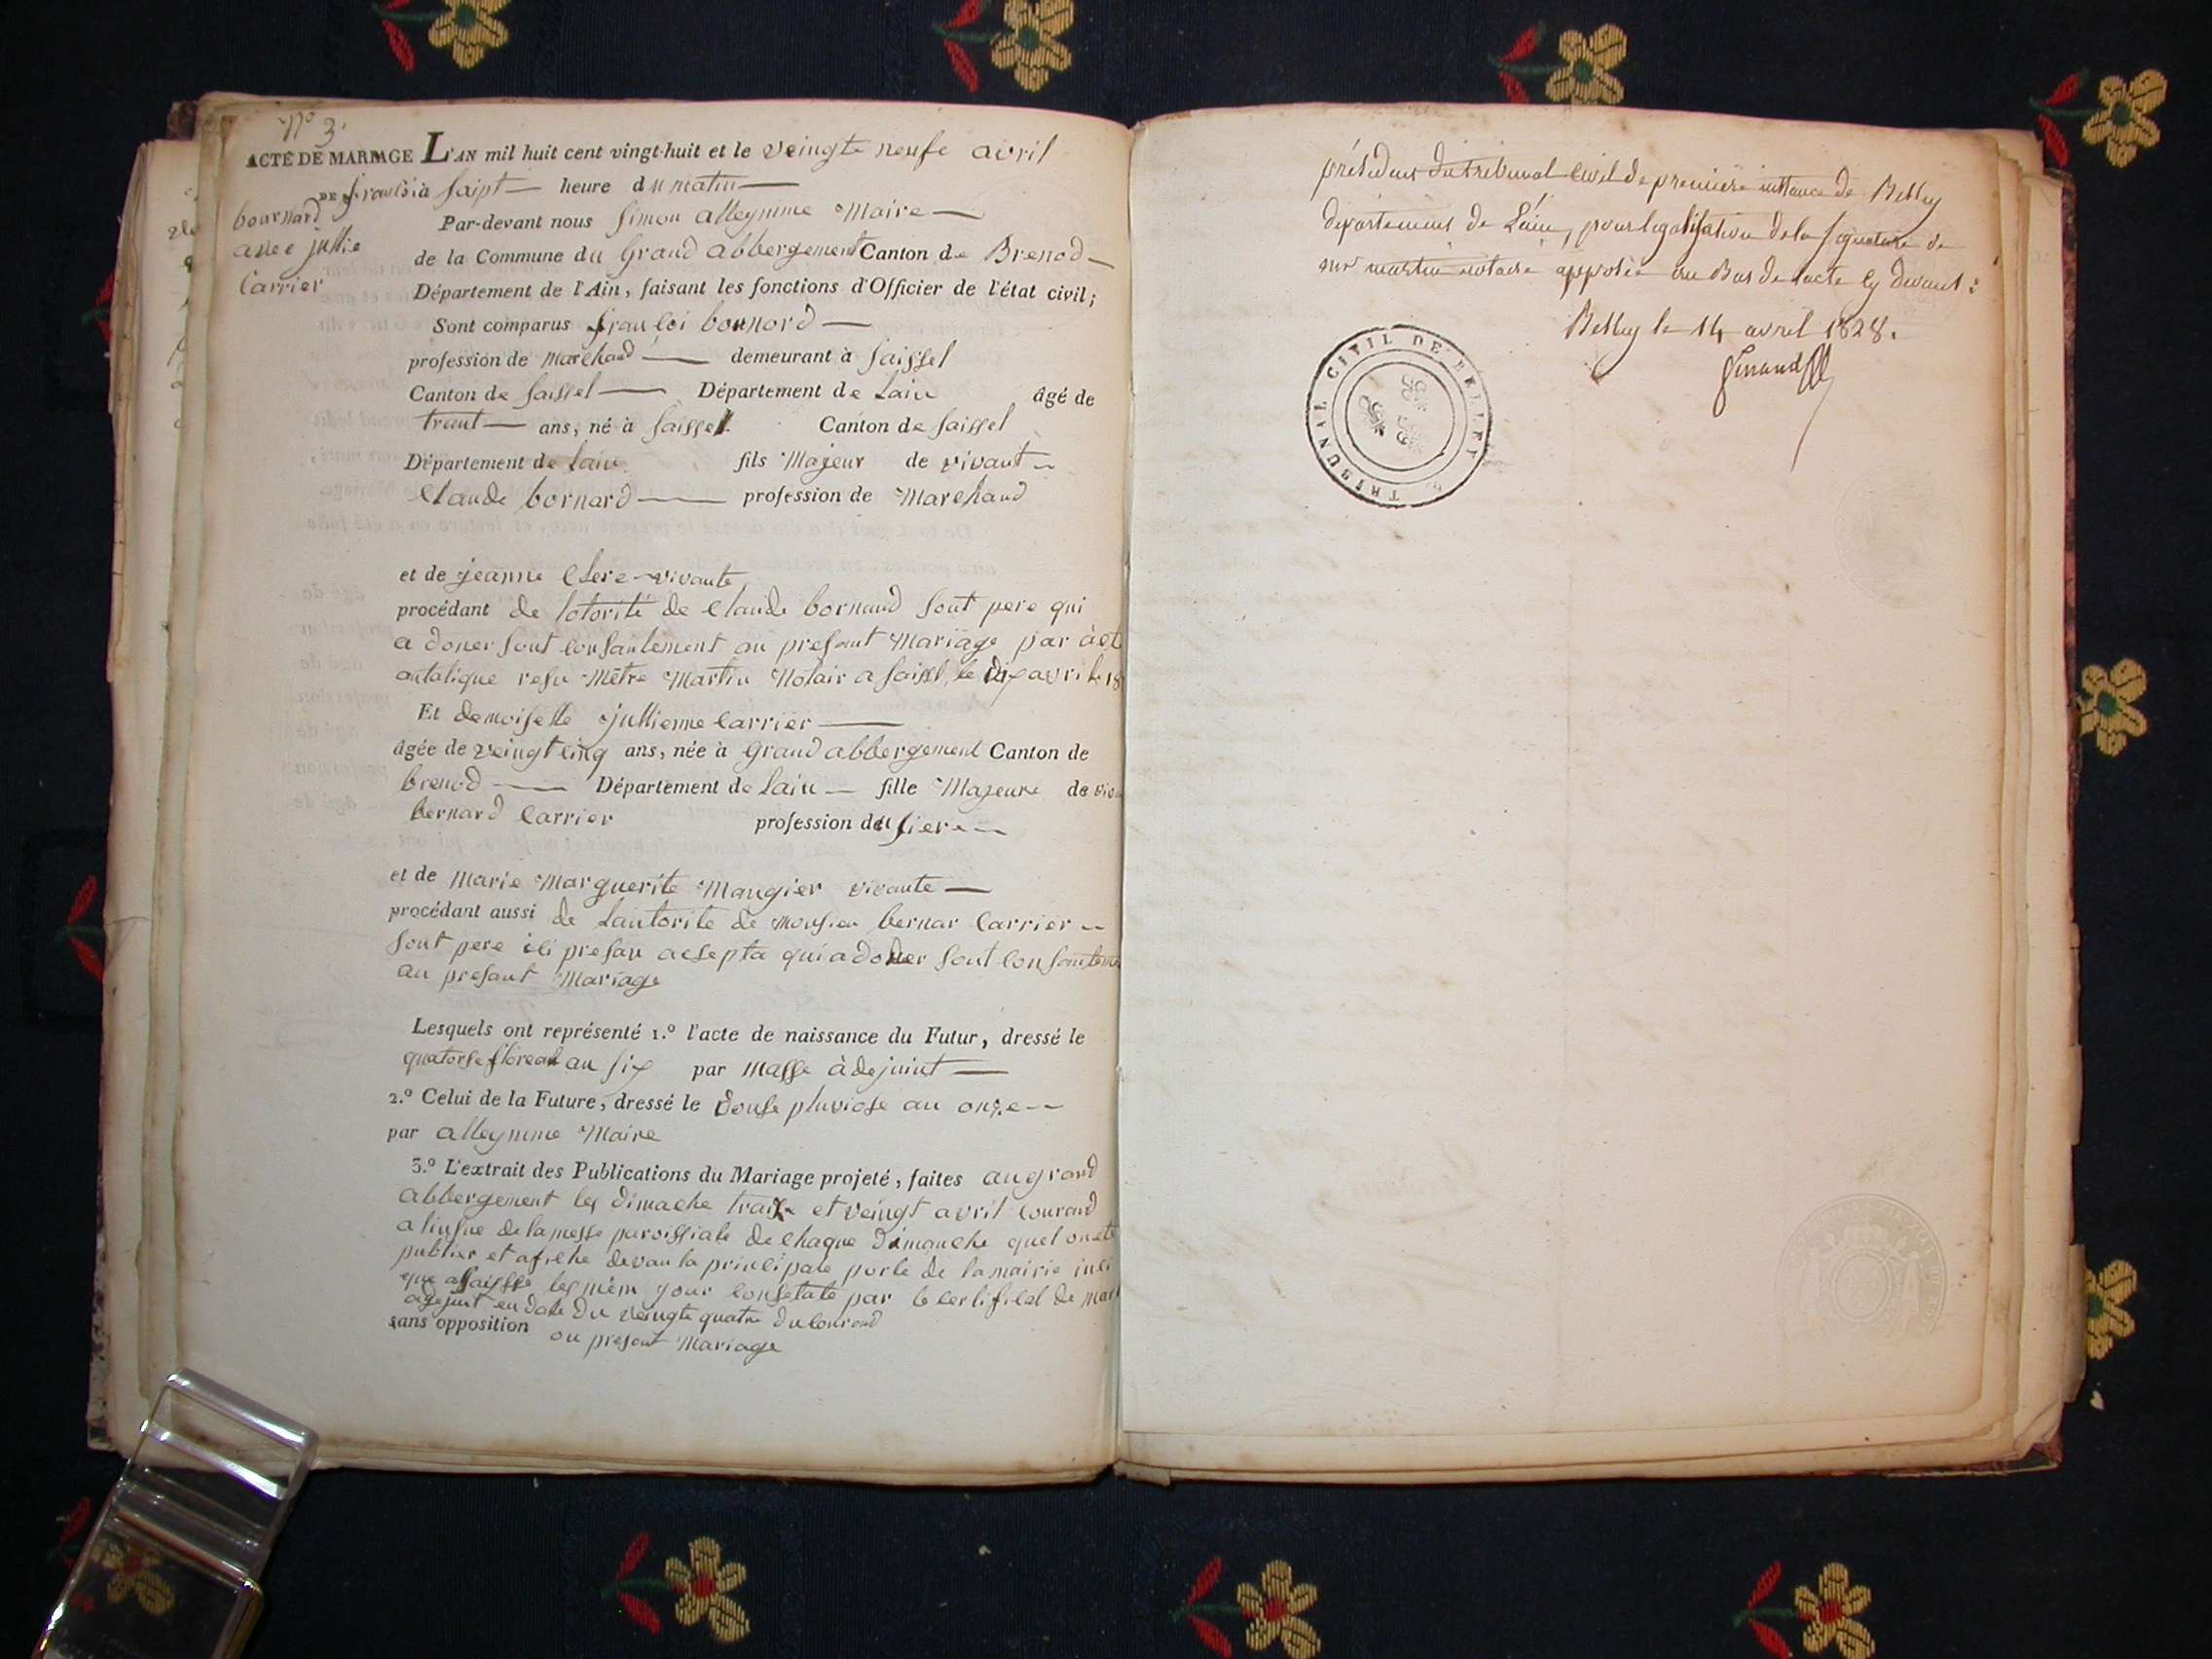 N.o 3.
ACTE DE MARIAGE L'AN mil huit cent vingt-huit et le veingte neufe avril
DE franloi à saipt heure du matin
bournard
avec jullie
Carrier
Par-devant nous simon alleymme Maire
de la Commune du Grand abbergement Canton de Brenod
Département de l'Ain, faisant les fonctions d'Officier de l'état civil;
Sont comparus franloi bornord
profession de marchand demeurant à saissel
Canton de saissel Département de Lain âgé de
trant ans, né à saissel Canton de saissel
Département de Lain fils Majeur de vivant
Claude bornard profession de Marchand
et de jeanne Clere vivante
procédant de lotorité de Claude bornaud sont pere qui
a doner sont consantement au presant Mariage par act
autatique resu Mêtre Martin Notair a saissl, le dix avril 18
Et demoiselle jullienne Carrier
âgée de veingt cinq ans, née à Grand abbergement Canton de
brenod Département de Lain fille Majeure de viva
bernard Carrier profession de
et de Marie Marguerite Mangier vivante
procédant aussi de Lautorite de monsieu bernar Carrier
sont pere ili presan acsepta qui a doner sont consanteme
au presant Mariage
Lesquels ont représenté 1.º l'acte de naissance du Futur, dressé le
quatorse floreal an six par Masse àdejuint
2.º Celui de la Future, dressé le douse pluviose an onze
par alleymme Maire
3.º L'extrait des Publications du Mariage projeté, faites au grand
abbergement les dimache traize et veingt avril courand
a linsue de la messe paroissiale de chaque dimanche quel on ete
publier et afiche devan la principale porte de la mairie
que a saissel les mém your constaté par le certificat de
adejuit en date du veingte quatre du courand
sans opposition ou presant Mariage
président du tribunal Civil de première instance de Belley
département de L'ain, pour legalisation de la signature de
mr martin notaire apposée au Bas de l'acte cy devant:
Belley le 14 avril 1828.
TRIBUNAL CIVIL DE BELLEY